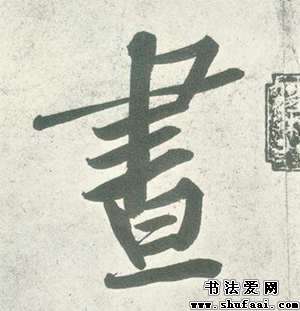 晝
书法爱网
www.shufaai.com